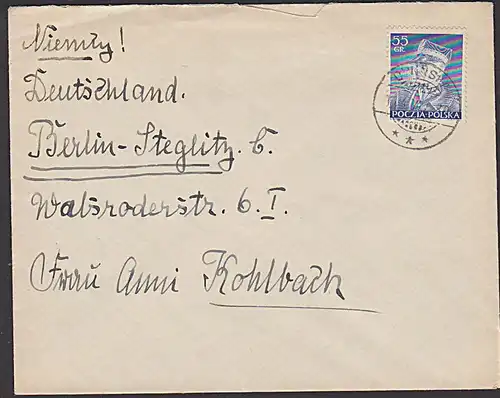 Niemzy!
Deutschland.
Berlin-Steglitz. 6.
Walsroderstr. 6. I.
Frau Anni Kohlbach
55
GR.
POCZTA·POLSKA